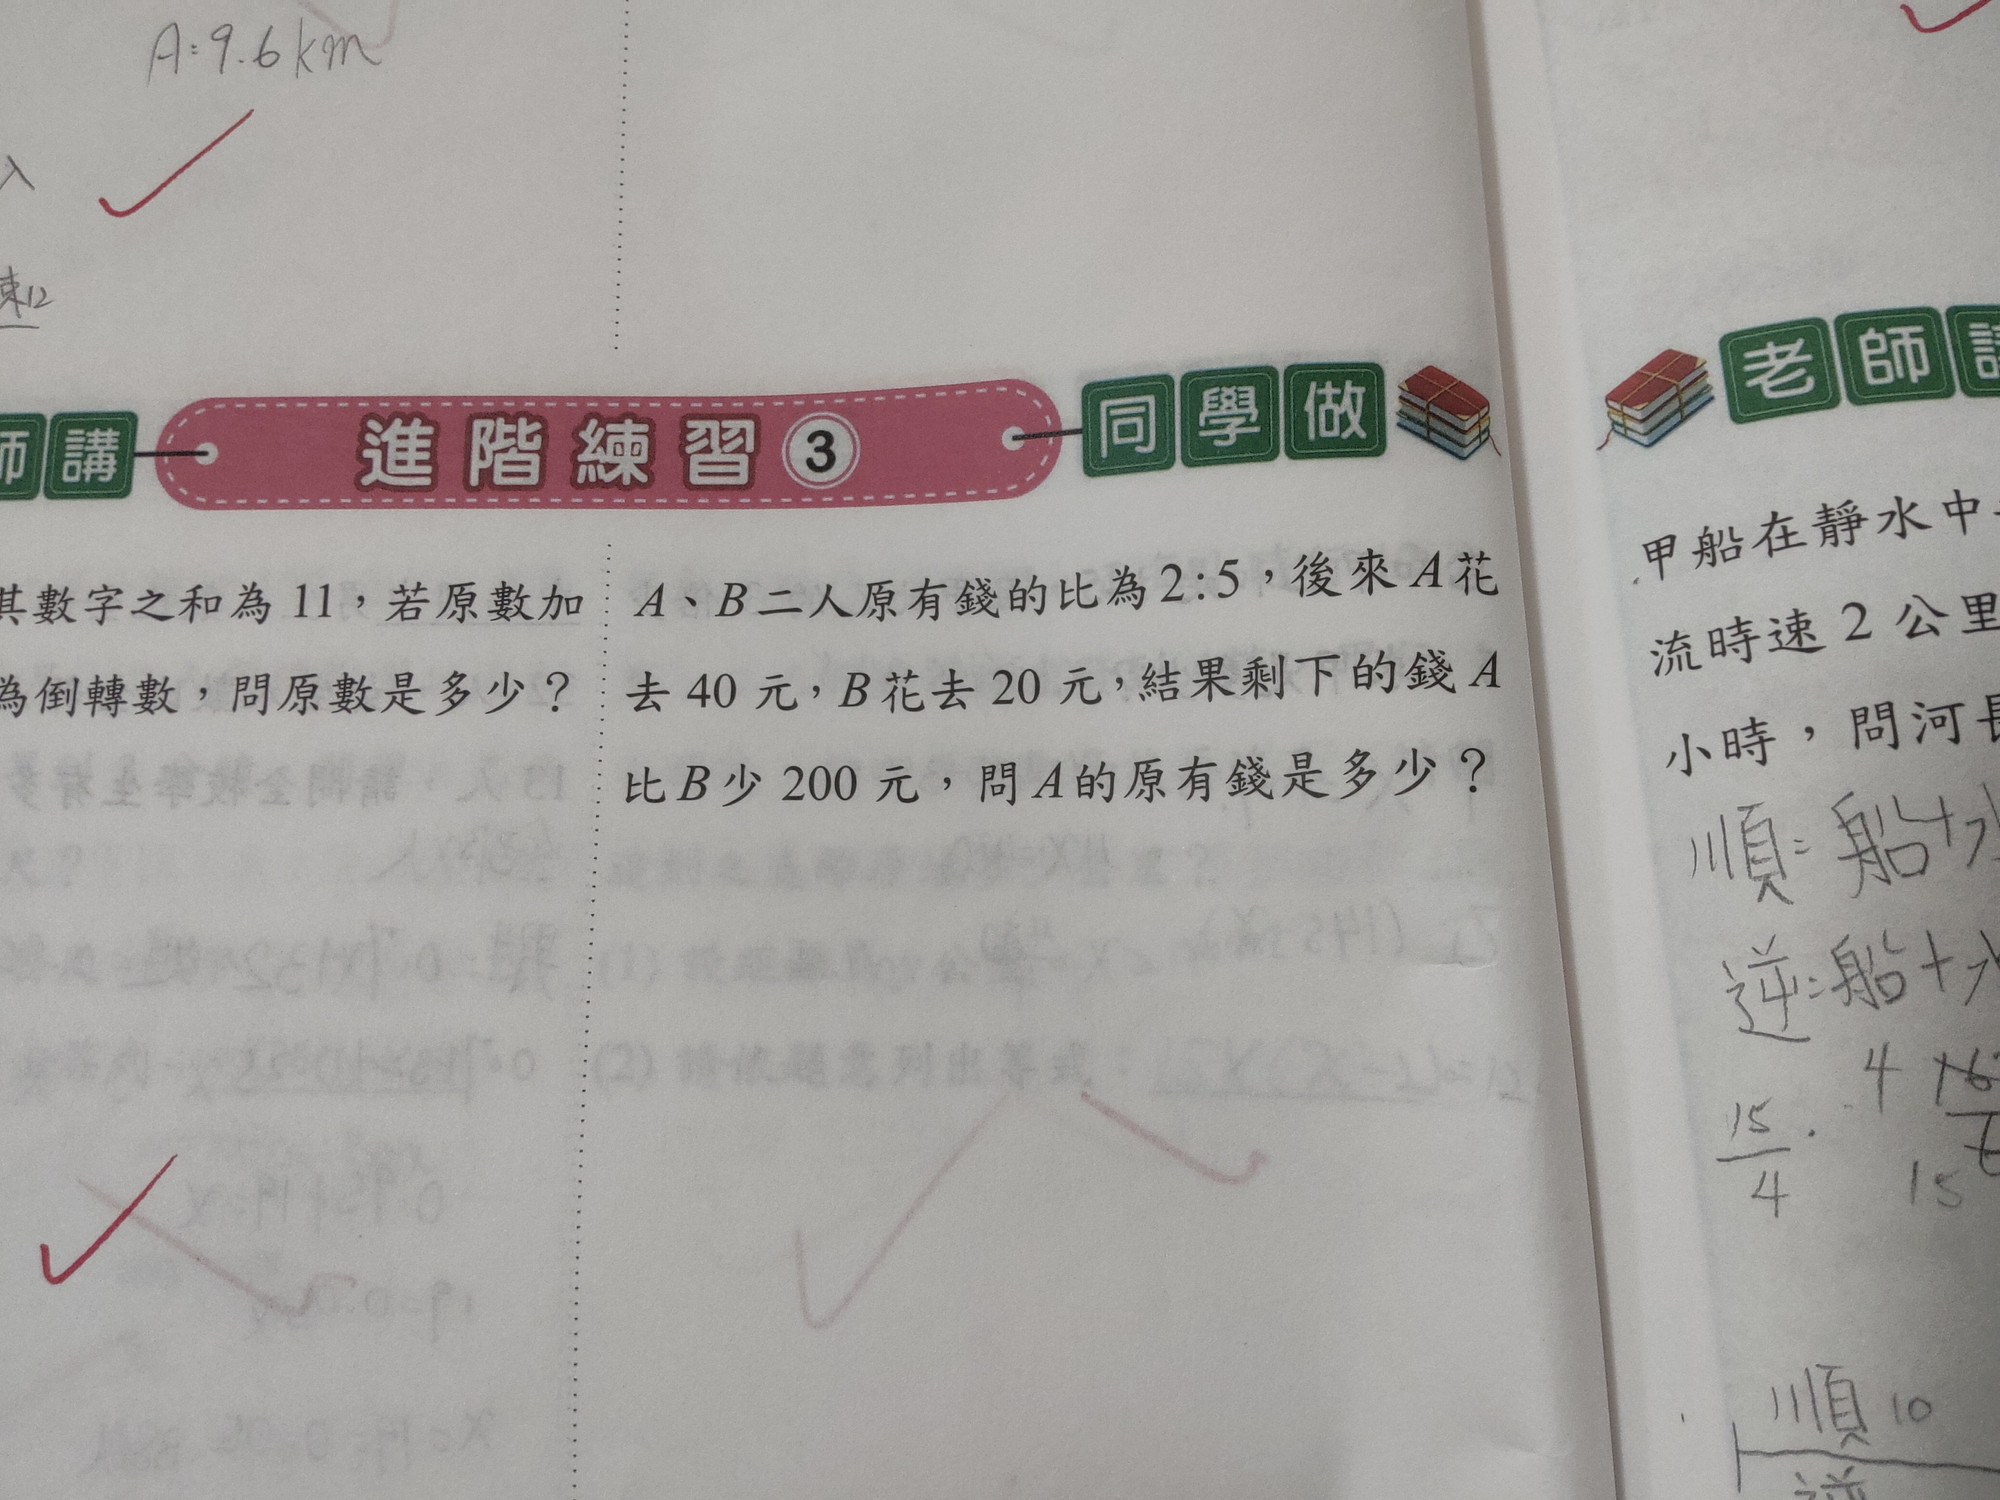 A:9.6km
入
速12
師講
進階練習3
同學做
其數字之和為 11，若原數加
為倒轉數，問原數是多少？
A、B二人原有錢的比為2:5，後來A花
去 40 元，B花去 20 元，結果剩下的錢A
比B少 200 元，問A的原有錢是多少？
老師講
甲船在靜水中
流時速 2 公里
小時，問河長
順=船+水
逆=船+水
15
4
4
15
順10
逆